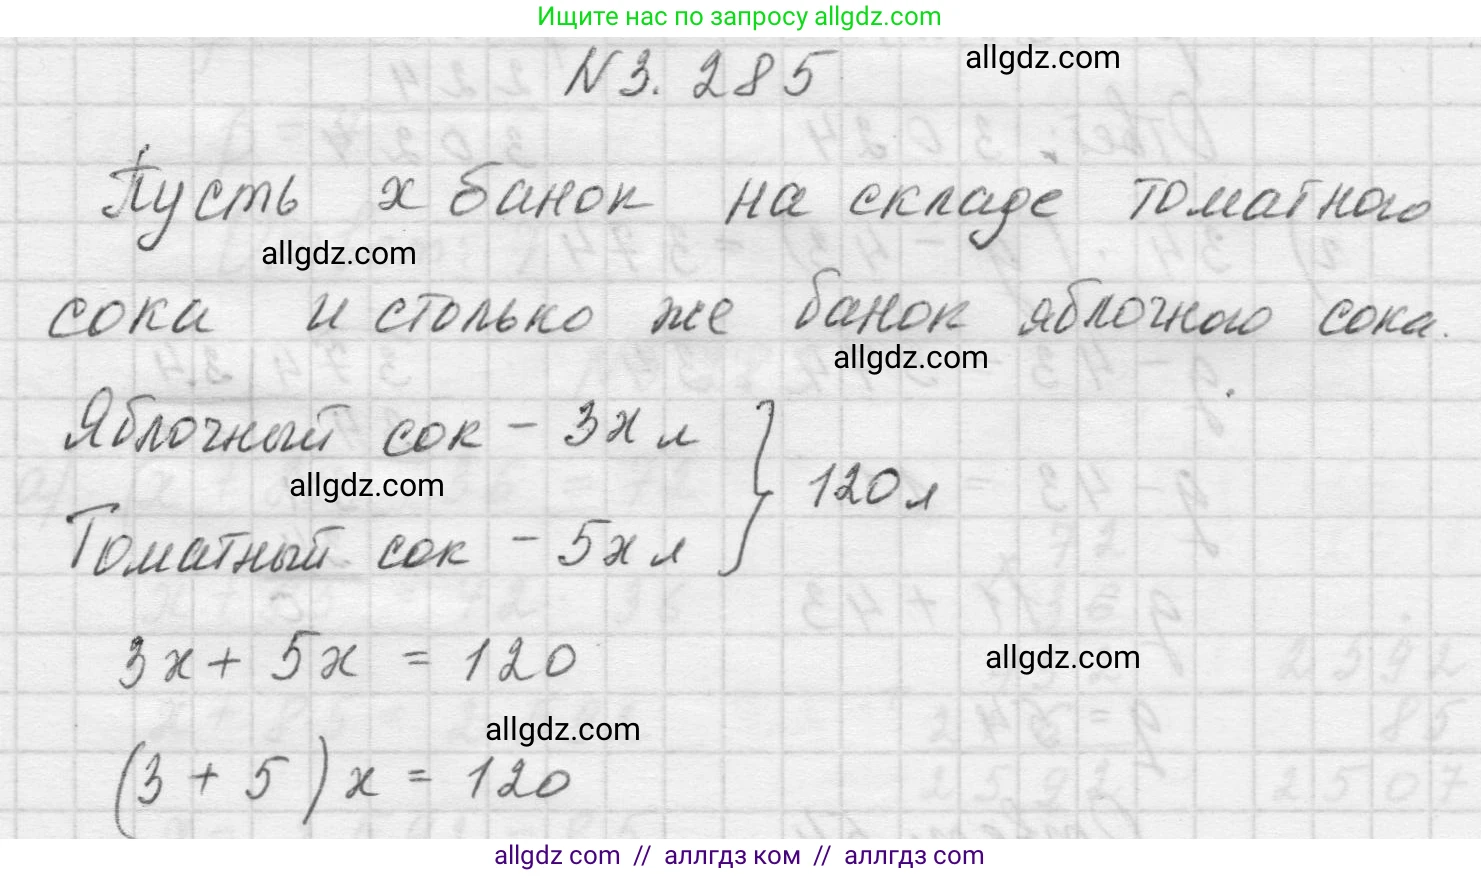 Ищите нас по запросу allgdz.com
N3.285
allgdz.com
Пусть x банок на складе томатного
allgdz.com
сока и столько же банок яблочного сока.
allgdz.com
Яблочный сок - 3x л
allgdz.com
120 л
Томатный сок - 5x л
3x + 5x = 120
allgdz.com
allgdz.com
(3 + 5)x = 120
allgdz com // аллгдз ком // аллгдз com